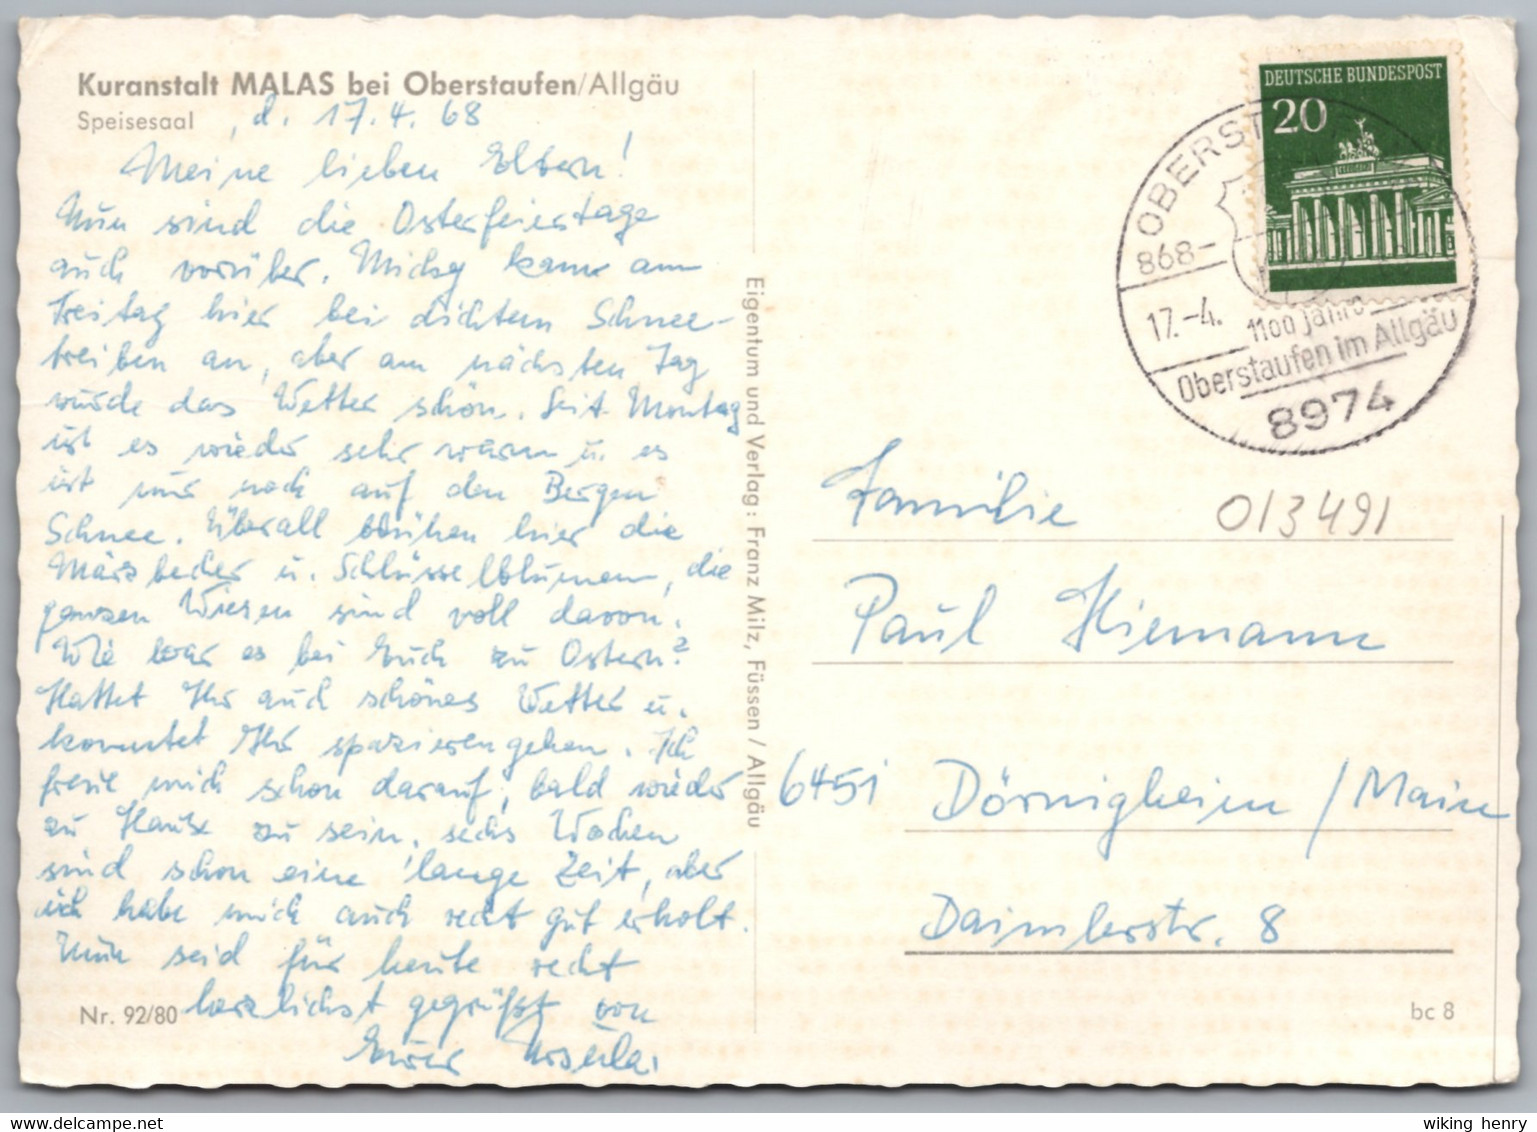 Kuranstalt MALAS bei Oberstaufen/Allgäu
Speisesaal , d. 17.4.68
Meine lieben Eltern!
Nun sind die Osterfeiertage
auch vorüber. Micky kam am
Freitag hier bei dichtem Schnee-
treiben an, aber am nächsten Tag
wurde das Wetter schön. Seit Montag
ist es wieder sehr warm u. es
ist nur noch auf den Bergen
Schnee. Überall blühen hier die
Märzbecher u. Schlüsselblumen, die
ganzen Wiesen sind voll davon.
Wie war es bei Euch zu Ostern?
Hattet Ihr auch schönes Wetter u.
konntet Ihr spazierengehen. Ich
freue mich schon darauf, bald wieder
zu Hause zu sein, sechs Wochen
sind schon eine lange Zeit, aber
ich habe mich auch recht gut erholt.
Nun seid für heute recht
herzlichst gegrüßt von
Eurer Ursula.
Nr. 92/80
Eigentum und Verlag: Franz Milz, Füssen / Allgäu
DEUTSCHE BUNDESPOST
20
OBERST
868-
17.-4.
1100 Jahre
Oberstaufen im Allgäu
8974
013491
Familie
Paul Hiemann
6451 Dörnigheim / Main
Daimlerstr. 8
bc 8
wiking henry
delcampe.net